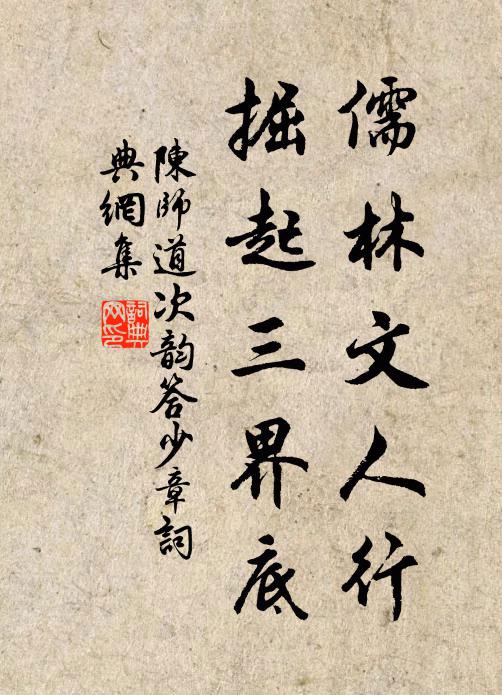 儒林文人行
掘起三界底
陳師道次韵答少章詞
典網集
詞典網印